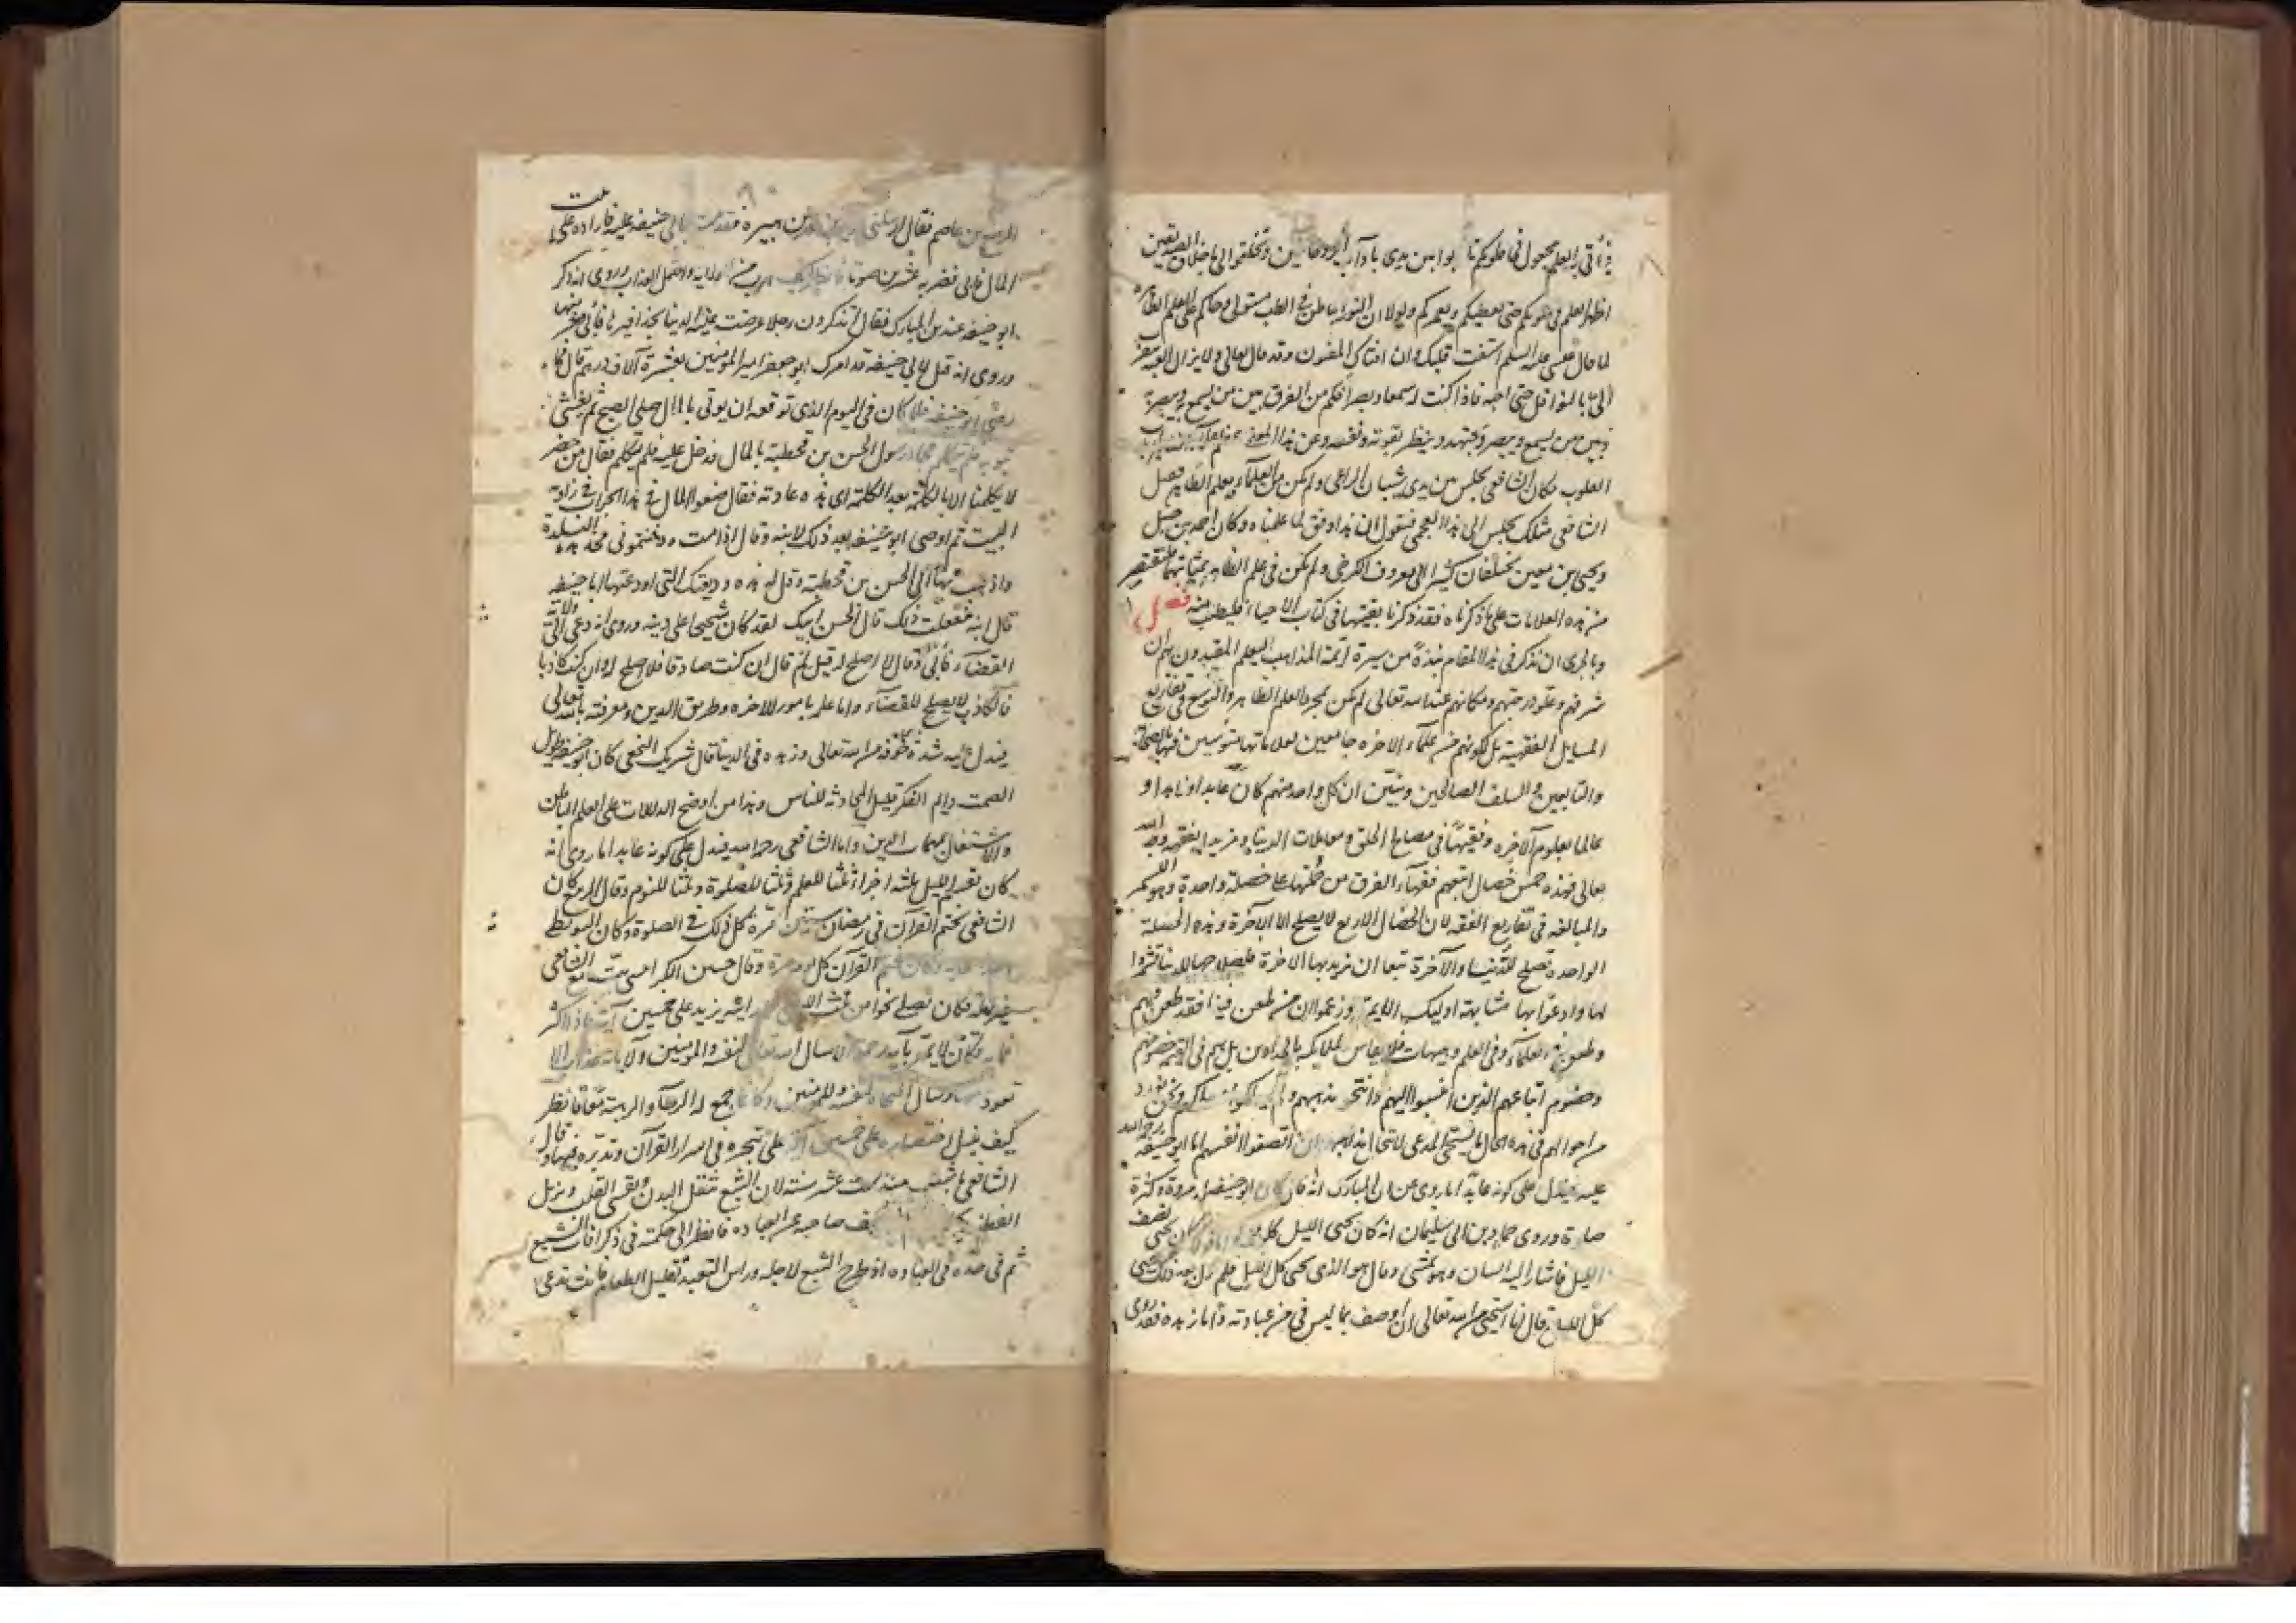 فيأتي به العلم مجعول في قلوبكم تأدبوا بين يدي بآداب الروحانيين وتخلقوا الي باخلاق الصديقين
اظهر العلم في قلوبكم حتى يعطيكم ويغمركم ولولا ان النور الباطن في القلب مستولي وحاكم على العلم الظاهر
لما قال عليه السلم استفت قلبك وان افتاك المفتون وقد قال تعالى ولا يزال العبد يتقرب
الي بالنوافل حتى احبه فاذا كنت له سمعا وبصرا فكم من الفرق بين من يسمع ويبصر به
وبين من يسمع ويبصر ويجتهد وينظر بقوته ونفسه وعن هذا المعنى
القلوب فكان الشافعي يجلس بين يدي شيبان الراعي ولم يكن من العلماء بعلم الظاهر فقيل
الشافعي مثلك يجلس الى هذا العجمي فيقول ان هذا وفق لما علمناه وكان احمد بن حنبل
ويحيى بن معين يختلفان كثيرا الى معروف الكرخي ولم يكن في علم الظاهر بمثابتهما فلنقتصر
من هذه العلامات على ما ذكرناه فقد ذكرنا بقيتها في كتاب الاحياء فليطلب منه فصل
وبالحري ان نذكر في هذا المقام نبذة من سيرة ائمة المذاهب ليعلم المقتدون بهم ان
شرفهم وعلو درجتهم ومكانهم عند الله تعالى لم يكن بمجرد العلم الظاهر والتوسع في تفاريع
المسايل الفقهية بل لكونهم من علماء الاخرة جامعين لعلاماتها متوسمين فيها بالصحابة
والتابعين والسلف الصالحين ونبين ان كل واحد منهم كان عابدا وزاهدا و
عالما بعلوم الآخرة وفقيها في مصالح الخلق ومعاملات الدنيا ومريدا بفقهه وجه الله
تعالى فهذه خمس خصال اتبعهم فقهاء الفرق من جملتها على خصلة واحدة وهو التشمر
والمبالغة في تفاريع الفقه لان الخصال الاربع لا يصلح الا الآخرة وهذه الخصلة
الواحدة تصلح للدنيا والآخرة تبعا ان نريد بها الآخرة فلصلاحها للدنيا تشمروا
لها وادعوا بها مشابهة اوليك الائمة وزعموا ان من طعن فينا فقد طعن فيهم
وطعن في العلماء وفي العلم وهيهات فلا يقاس الملايكة بالحدادين بل هم في القيمة خصومهم
وخصوم اتباعهم الذين انتسبوا اليهم وانتحلوا مذهبهم ولم يسلكوا مسلكهم ونحن نورد
من احوالهم في هذه الحال ما يستحيي المدعي لانتحال مذاهبهم ان انصفوا انفسهم اما ابو حنيفة رحمه الله
عليه فيدل على كونه عابدا ما روي عن ابن المبارك انه قال كان ابو حنيفة له مروة وكثرة
صلاة وروى حماد بن ابي سليمان انه كان يحيي الليل كله وروي انه كان يحيي نصف
الليل فاشار اليه انسان وهو يمشي وقال هو الذي يحيي كل الليل فلم يزل بعد ذلك يحيي
كل الليل وقال انا استحيي من الله تعالى ان اوصف بما ليس في من عبادته واما زهده فقد روى
الربيع بن عاصم فقال ارسلني يزيد بن عمر بن هبيرة فقدمت بابي حنيفة عليه فاراده على بيت
المال فابى فضربه عشرين سوطا فانظر كيف هرب من الولاية واحتمل العذاب وروي انه ذكر
ابو حنيفة عند بن المبارك فقال اتذكرون رجلا عرضت عليه الدنيا بحذافيرها فابى
وروي انه قيل لابي حنيفة قد امر لك ابو جعفر امير المؤمنين بعشرة آلاف درهم قال فما
رضي ابو حنيفة فلما كان في اليوم الذي توقعه ان يوتى بالمال صلى الصبح ثم تغشى
بثوبه فلم يتكلم فجاء رسول الحسن بن قحطبة بالمال فدخل عليه فلم يتكلم فقال من حضر
لا يكلمنا الا بالكلمة بعد الكلمة اي هذه عادته فقال ضعوا المال في هذا الجراب في زاوية
البيت ثم اوصى ابو حنيفة بعد ذلك لابنه وقال اذا مت ودفنتموني فخذ هذه البدرة
واذهب بها الى الحسن بن قحطبة وقل له هذه وديعتك التي اودعتها ابا حنيفة
قال ابنه ففعلت ذلك قال الحسن ابيك لقد كان شحيحا على دينه وروي انه دعي الى ولاية
القضاء فأبى وقال لا اصلح له قيل لم قال ان كنت صادقا فلا اصلح له وان كنت كاذبا
فالكاذب لا يصلح للقضاء واما علمه بامور الاخره وطريق الدين ومعرفته بالله تعالى
فيدل عليه شدة خوفه من الله تعالى وزهده في الدنيا قال شريك النخعي كان ابو حنيفة طويل
الصمت دايم الفكر قليل المحادثة للناس وهذا من اوضح الدلالات على العلم الباطن
والاشتغال بمهمات الدين واما الشافعي رحمه الله فيدل على كونه عابدا ما روي انه
كان يقسم الليل ثلثة اجزاء ثلثا للعلم وثلثا للصلوة وثلثا للنوم وقال الربيع كان
الشافعي يختم القرآن في رمضان ستين مرة كل ذلك في الصلوة وكان البويطي
احد اصحابه وكان يختم القرآن كل يوم مرة وقال حسين الكرابيسي بت مع الشافعي
غير ليلة فكان يصلي نحوا من ثلث الليل فما رايته يزيد على خمسين آية فاذا اكثر
فماية وكان لا يمر بآية رحمة الا سال الله تعالى لنفسه والمؤمنين ولا بآية عذاب الا
تعوذ منها وسال النجاة لنفسه وللمؤمنين وكانما جمع له الرجاء والرهبة معا فانظر
كيف يدل اختصاره على خمسين آية على تبحره في اسرار القرآن وتدبره فيها وقال
الشافعي ما شبعت منذ ست عشر سنة لان الشبع يثقل البدن ويقسي القلب ويزيل
الفطنة ويضعف صاحبه عن العبادة فانظر الى حكمته في ذكر افات الشبع
ثم في جده في العبادة اذ طرح الشبع لاجله وراس التعبد تقليل الطعام